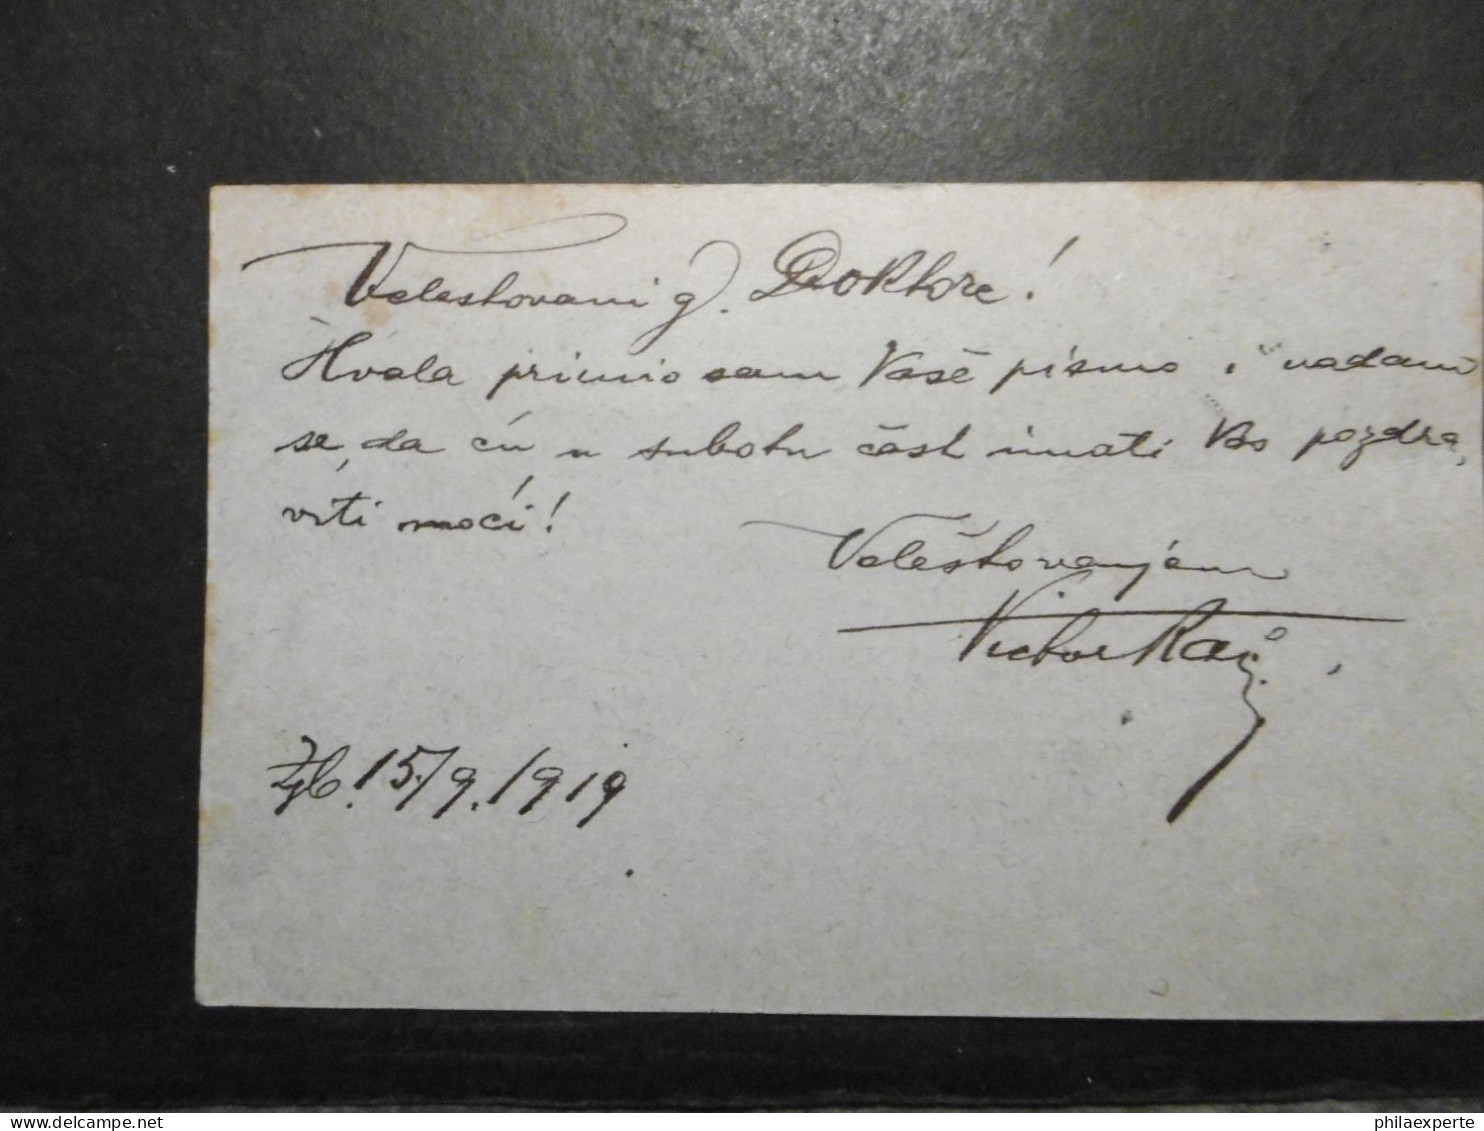 Veleštovani g. Doktore!
Hvala primio sam Vaše pismo i nadam
se, da ću u subotu čast imati Vas pozdra,
viti moći!
Veleštovanjem
Victor
Zgb. 15/9. 1919
philaexperte